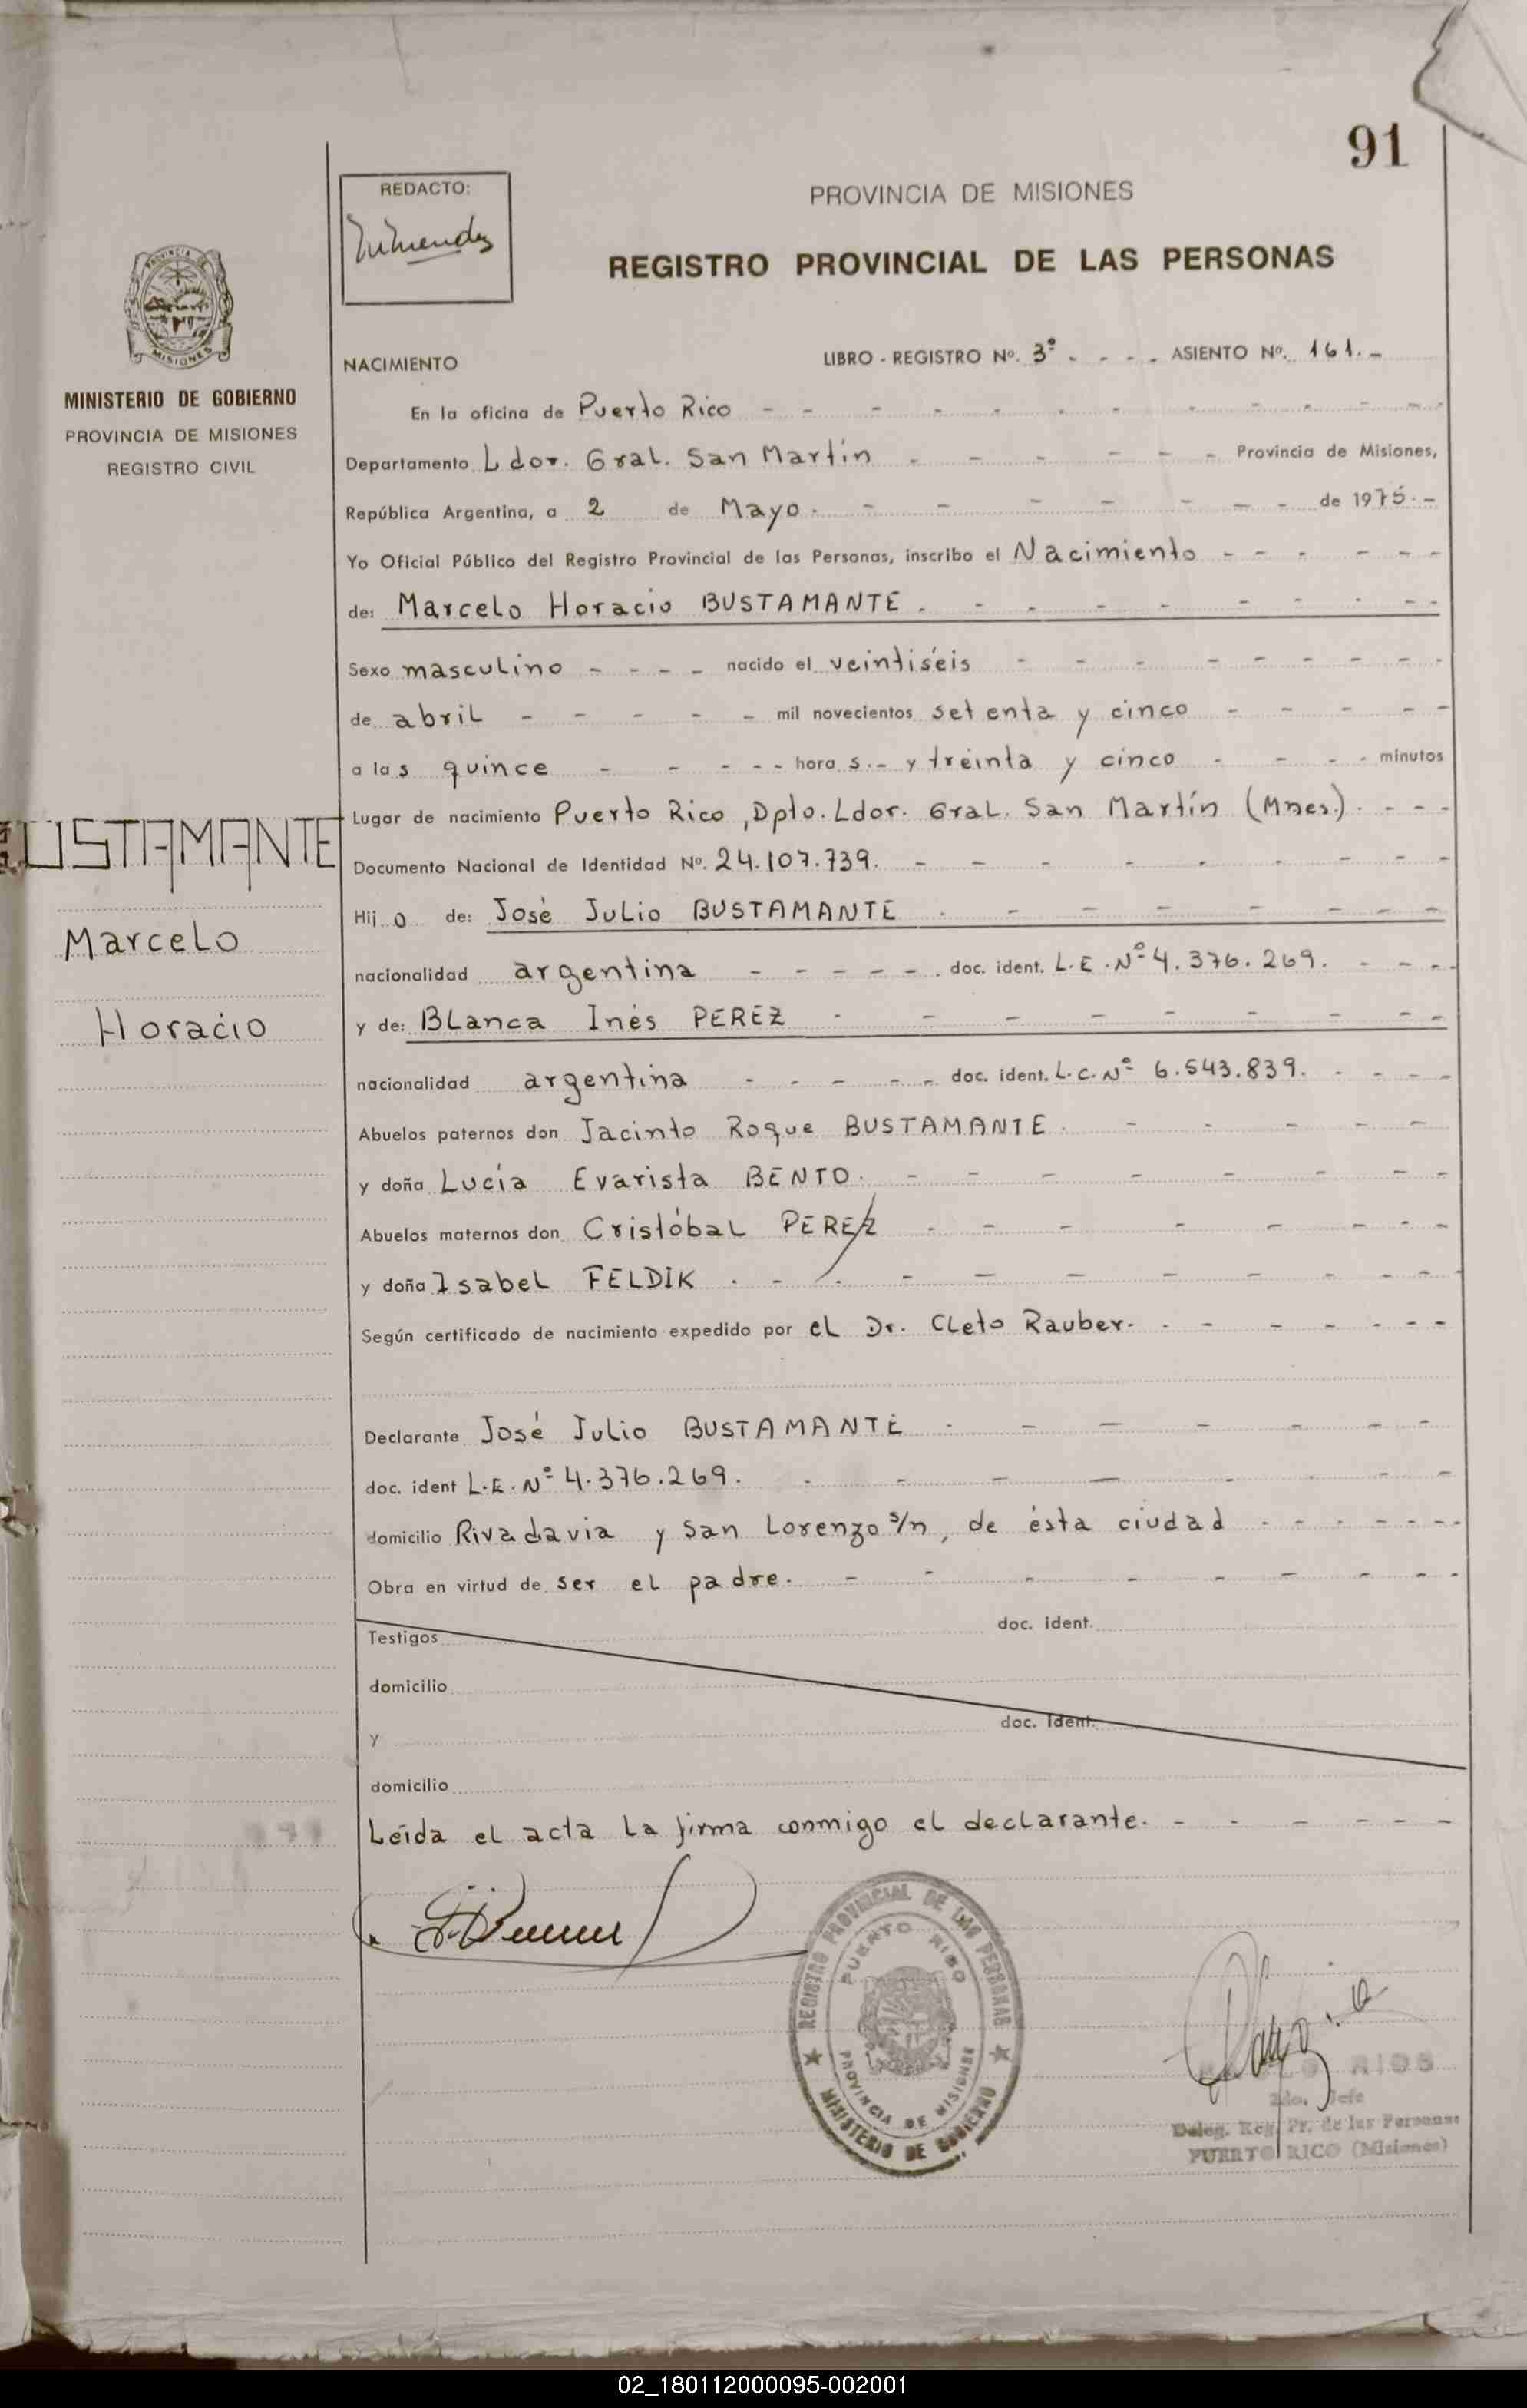 91
REDACTO:
PROVINCIA DE MISIONES
REGISTRO PROVINCIAL DE LAS PERSONAS
PROVINCIA DE
MISIONES
MINISTERIO DE GOBIERNO
PROVINCIA DE MISIONES
REGISTRO CIVIL
NACIMIENTO LIBRO - REGISTRO Nº. 3º - - - - ASIENTO Nº. 161.-
En la oficina de Puerto Rico
Departamento Ldor. Gral. San Martín Provincia de Misiones,
República Argentina, a 2 de Mayo. de 1975.-
Yo Oficial Público del Registro Provincial de las Personas, inscribo el Nacimiento
de: Marcelo Horacio BUSTAMANTE.
Sexo masculino nacido el veintiséis
de abril mil novecientos setenta y cinco
a las quince hora s.- y treinta y cinco minutos
Lugar de nacimiento Puerto Rico, Dpto. Ldor. Gral. San Martín (Mnes.).
Documento Nacional de Identidad Nº. 24.107.739.
Hijo de: José Julio BUSTAMANTE
nacionalidad argentina doc. ident. L.E.Nº 4.376.269.
y de: Blanca Inés PEREZ
nacionalidad argentina doc. ident. L.C.Nº 6.543.839.
Abuelos paternos don Jacinto Roque BUSTAMANTE.
y doña Lucía Evarista BENTO.
Abuelos maternos don Cristóbal PEREZ
y doña Isabel FELDIK.
Según certificado de nacimiento expedido por el Dr. Cleto Rauber.
Declarante José Julio BUSTAMANTE
doc. ident L.E.Nº 4.376.269.
domicilio Rivadavia y San Lorenzo s/n, de ésta ciudad
Obra en virtud de ser el padre.
Testigos doc. ident.
domicilio
y doc. ident.
domicilio
Leída el acta la firma conmigo el declarante.
BUSTAMANTE
Marcelo
Horacio
REGISTRO PROVINCIAL DE LAS PERSONAS
PUERTO RICO
PROVINCIA DE MISIONES
MINISTERIO DE GOBIERNO
RIOS
2do. Jefe
Deleg. Reg. Pr. de las Personas
PUERTO RICO (Misiones)
02_180112000095-002001